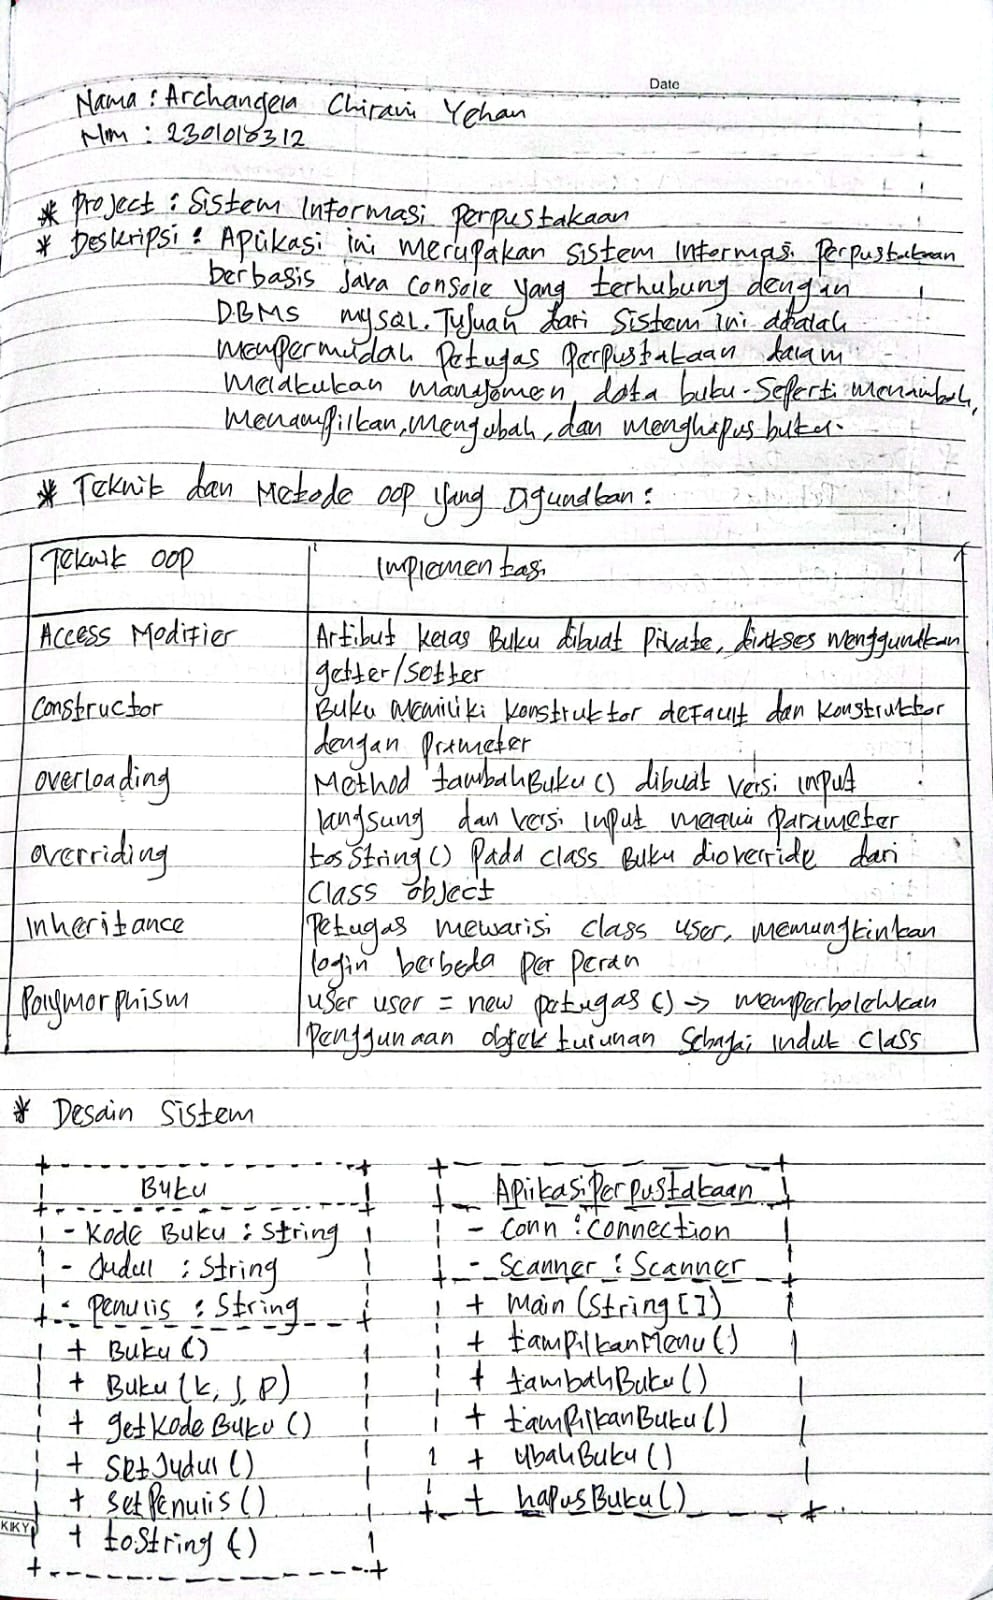 Date
Nama : Archangela Chiravi Yehan
Nim : 2301018312
* Project : Sistem Informasi Perpustakaan
* Deskripsi : Aplikasi ini merupakan sistem Informasi Perpustakaan
berbasis Java console yang terhubung dengan
DBMS mySQL. Tujuan dari sistem ini adalah
mempermudah Petugas Perpustakaan dalam
melakukan manajemen data buku. Seperti menambah,
menampilkan, mengubah, dan menghapus buku.
* Teknik dan Metode OOP yang Digunakan :
Teknik OOP
Implementasi
Access Modifier
Artibut kelas Buku dibuat Pivate, diakses menggunakan
getter/setter
Constructor
Buku memiliki konstruktor default dan konstruktor
dengan Prameter
overloading
Method tambahBuku () dibuat versi input
langsung dan versi input melalui parameter
overriding
tosString () Pada class Buku dioverride dari
class object
Inheritance
Petugas mewarisi class user, memungkinkan
login berbeda per peran
Polymorphism
user user = new petugas () → memperbolehkan
Penggunaan objek turunan sebagai induk class
* Desain Sistem
Buku
- Kode Buku : String
- Judul : String
- Penulis : String
+ Buku ()
+ Buku (k, J, P)
+ getKode Buku ()
+ SetJudul ()
+ setPenulis ()
+ toString ()
AplikasiPerpustakaan
- Conn : Connection
- Scanner : Scanner
+ Main (String [])
+ tampilkanMenu ()
+ tambahBuku ()
+ tampilkanBuku ()
+ UbahBuku ()
+ hapusBuku ()
KIKY